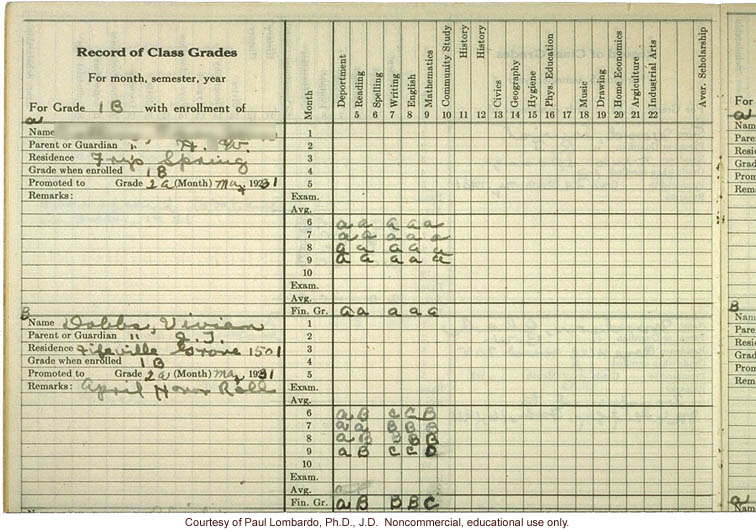 Record of Class Grades
For month, semester, year
For Grade 1B with enrollment of
Month Deportment Reading Spelling Writing English Mathematics Community Study History History Civics Geography Hygiene Phys. Education Music Drawing Home Economics Argiculture Industrial Arts Aver. Scholarship
5 6 7 8 9 10 11 12 13 14 15 16 17 18 19 20 21 22
a
Name 1
Parent or Guardian " H. W. 2
Residence Frys Spring 3
Grade when enrolled 1B 4
Promoted to Grade 2a (Month) May 1931 5
Remarks: Exam.
Avg.
6 a a a a a
7 a a a a a
8 a a a a a
9 a a a a a
10
Exam.
Avg.
Fin. Gr. a a a a a
B
Name Dobbs, Vivian 1
Parent or Guardian " J. T. 2
Residence Fifeville Grove 1501 3
Grade when enrolled 1B 4
Promoted to Grade 2a (Month) May 1931 5
Remarks: April Honor Roll Exam.
Avg.
6 a B C C B
7 a a B B B
8 a B B B B
9 a B C C D
10
Exam.
Avg.
Fin. Gr. a B B B C
For
a
Nam
Pare
Resi
Grad
Pron
Rem
B
Nam
Pare
Resi
Grad
Pron
Rem
a
Nam
Courtesy of Paul Lombardo, Ph.D., J.D. Noncommercial, educational use only.